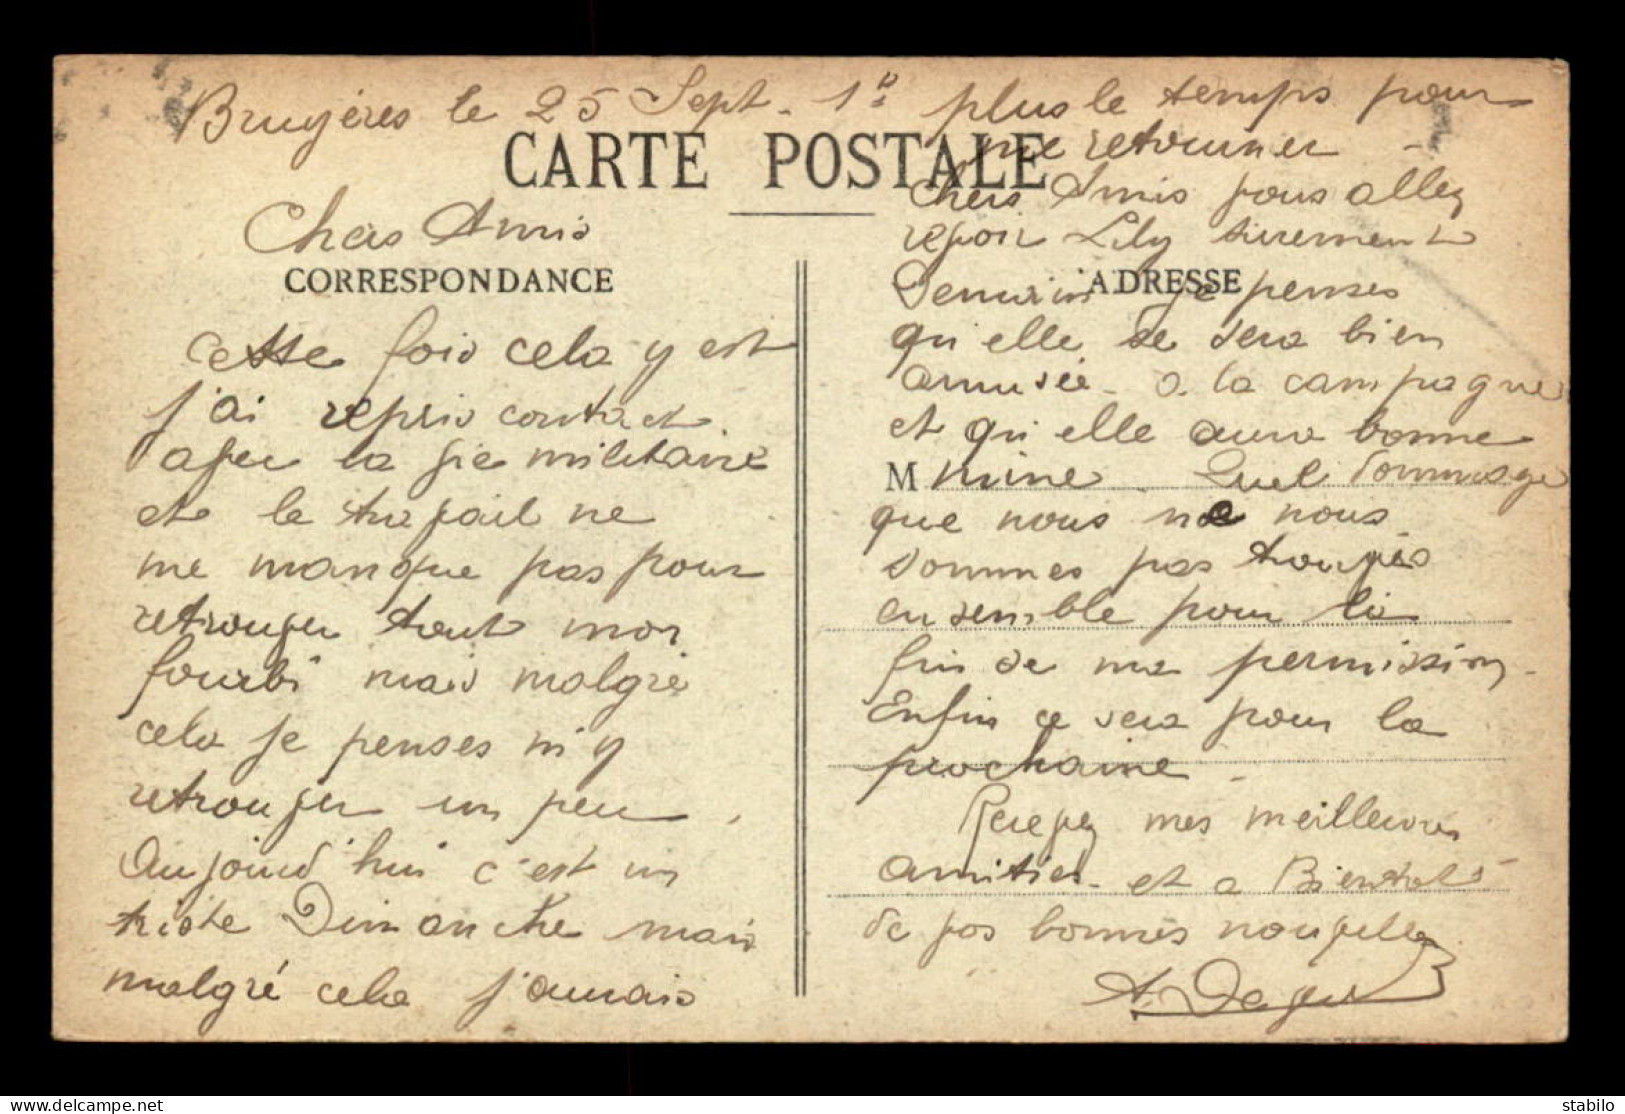 Bruyères le 25 Sept. 1
CARTE POSTALE
Chers Amis
CORRESPONDANCE
cette fois cela y est
j'ai repris contact
avec la vie militaire
et le travail ne
me manque pas pour
retrouver tout mon
fourbi mais malgré
cela je penses m'y
retrouver un peu.
Aujourd'hui c'est un
triste Dimanche mais
malgré cela j'aurais
plus le temps pour
me retourner
Chers Amis vous allez
revoir Lily surement
ADRESSE
Demain je penses
qu'elle se sera bien
amusée a la campagne
et qu'elle aura bonne
M
mine. Quel Dommage
que nous ne nous
sommes pas trouvés
ensemble pour la
fin de ma permission.
Enfin ce sera pour la
prochaine.
Recevez mes meilleures
amitiés et a Bientot
de vos bonnes nouvelles
A.
delcampe.net
stabilo